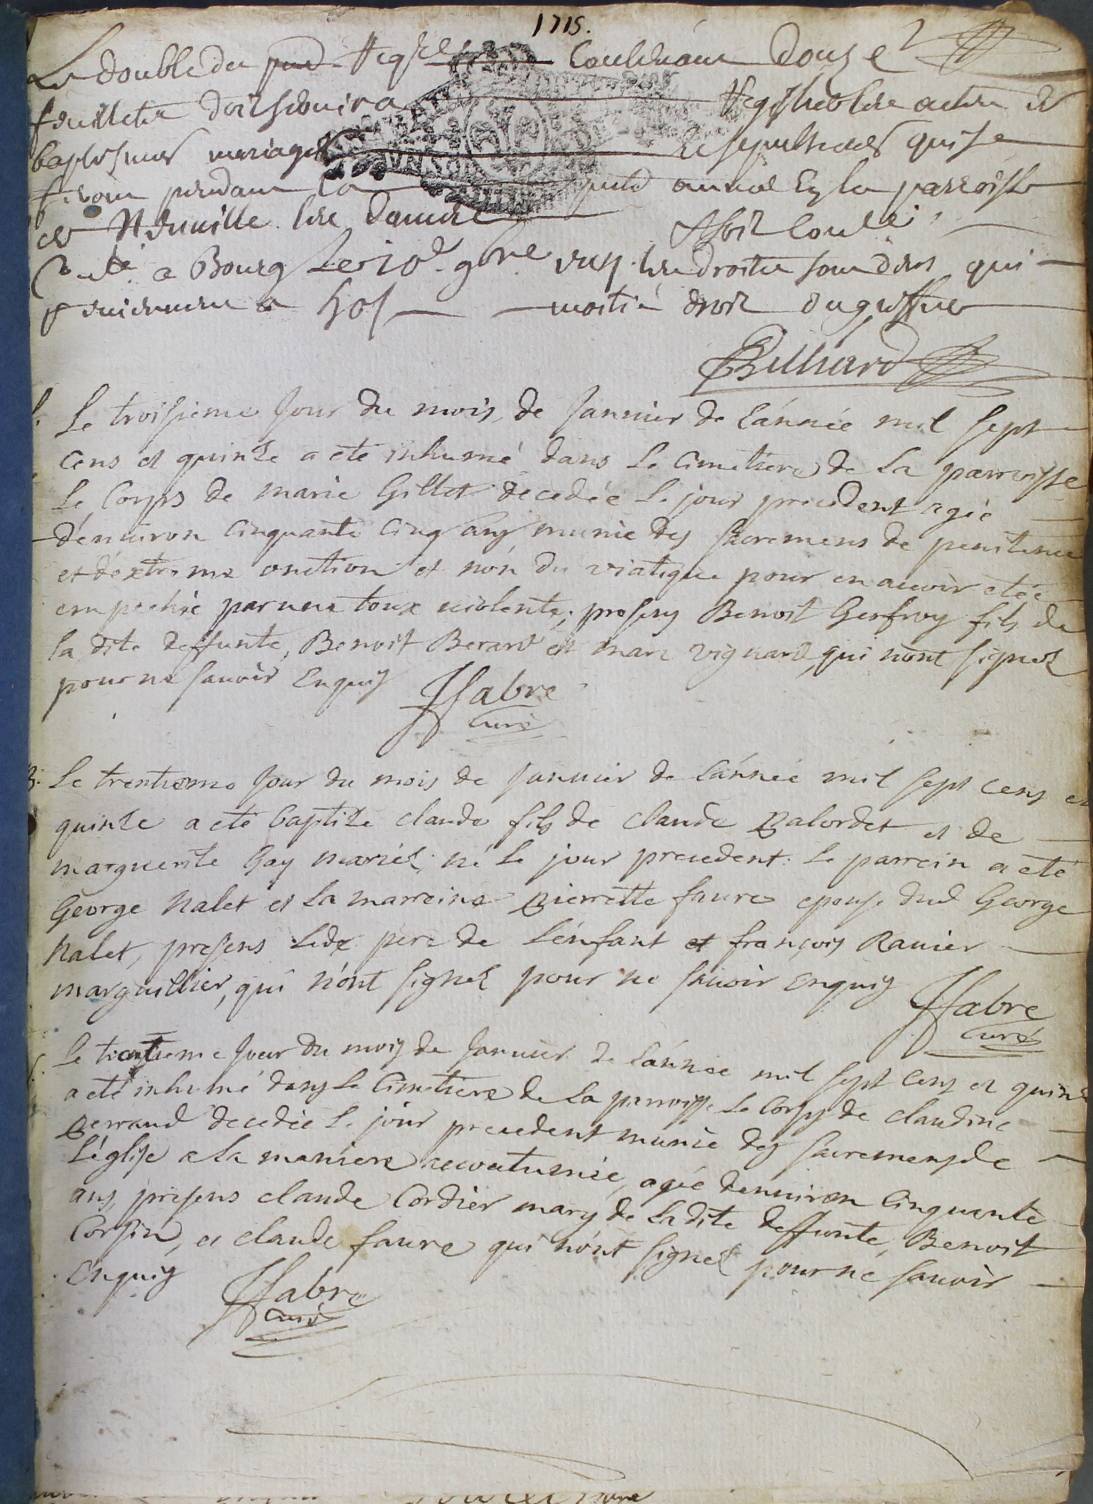 1715.
Le double du pnt Regre Contenant douze
feuillets doit servir a Registrer les actes de
baptesmes mariages et sepultures qui se
feront pendant la pnte année En la parroisse
de Neuville les dames
a Bourg Le 10e 9bre les droits sont deus qui
reviennent a moitié droit du greffier
Billiard
Le troisieme Jour du mois de Janvier de L'année mil sept
cens et quinze a eté inhumé dans Le Cimetiere de La parroisse
Le Corps de marie Gillet decedée Le jour precedent agée
d'environ cinquante cinq ans munie des sacremens de penitence
et d'extreme onction et non du viatique pour en avoir etée
empechée par une toux violente; presens Benoit Gerfroy fils de
la dite deffunte, Benoit Berard et marc vignard, qui n'ont signez
pour ne savoir Enquis JFabre
Curé
Le trentieme Jour du mois de Janvier de L'année mil sept cens et
quinze a eté baptize claude fils de claude Balordet et de
marguerite Gay mariéz; né Le jour precedent: Le parrein a eté
George Nalet et La marreine Pierrette faure epouse dud George
Nalet, presens Led pere de L'enfant et françois Ravier
marguillier, qui n'ont signez pour ne savoir enquis JFabre
Curé
Le trentieme Jour du mois de Janvier de L'année mil sept cens et quinze
a eté inhumé dans Le Cimetiere de La parroisse Le Corps de claudine
Perraud decedée Le jour precedent munie des sacremens de
L'église a la maniere accoutumée, agée d'environ cinquante
ans, presens claude Cordier mary de La dite deffunte, Benoit
Corsin, et claude faure qui n'ont signez pour ne savoir
Enquis JFabre
Curé